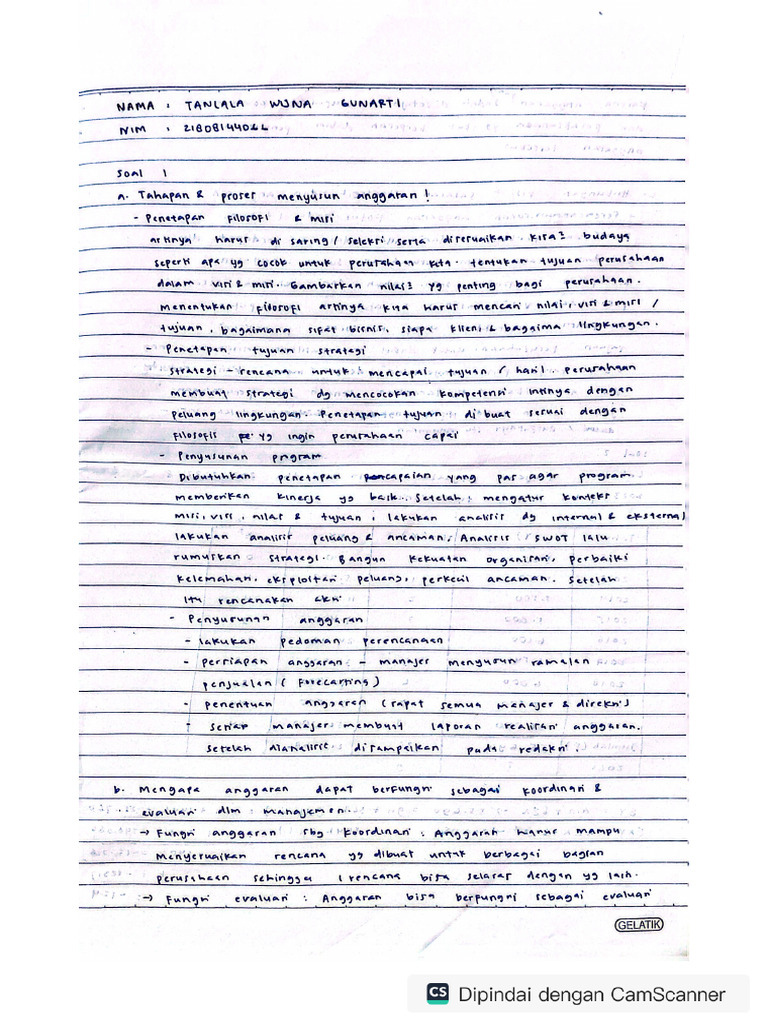 NAMA : TANLALA WIJNA GUNARTI
NIM : 21808144022
SOAL 1
a. Tahapan & proses menyusun anggaran !
- Penetapan filosofi & misi
artinya harus di saring / seleksi serta disesuaikan. kira² budaya
seperti apa yg cocok untuk perusahaan kita. tentukan tujuan perusahaan
dalam visi & misi. Gambarkan nilai² yg penting bagi perusahaan.
menentukan filosofi artinya kita harus mencari nilai, visi & misi /
tujuan, bagaimana sifat bisnis, siapa klien & bagaima lingkungan.
- Penetapan tujuan strategi
strategi - rencana untuk mencapai tujuan / hasil perusahaan
membuat strategi dg mencocokan kompetensi intinya dengan
peluang lingkungan. Penetapan tujuan di buat sesuai dengan
filosofis yg ingin perusahaan capai
- Penyusunan program
Dibutuhkan penetapan pencapaian yang pas agar program
memberikan kinerja yg baik. Setelah mengatur konteks
misi, visi, nilai & tujuan, lakukan analisis dg internal & eksternal
lakukan analisis peluang & ancaman, Analisis SWOT lalu
rumuskan strategi. Bangun kekuatan organisasi, perbaiki
kelemahan, eksploitasi peluang, perkecil ancaman. Setelah
itu rencanakan aksi
- Penyusunan anggaran
- lakukan pedoman perencanaan
- persiapan anggaran - manajer menyusun ramalan
penjualan ( Forecasting )
- penentuan anggaran (rapat semua manajer & direksi)
- setiap manajer membuat laporan realisasi anggaran.
setelah dianalisis disampaikan pada redaksi.
b. Mengapa anggaran dapat berfungsi sebagai koordinasi &
evaluasi dlm manajemen.
→ Fungsi anggaran sbg koordinasi : Anggaran harus mampu
menyesuaikan rencana yg dibuat untuk berbagai bagian
perusahaan sehingga rencana bisa selaras dengan yg lain.
→ Fungsi evaluasi : Anggaran bisa berfungsi sebagai evaluasi
GELATIK
CS Dipindai dengan CamScanner